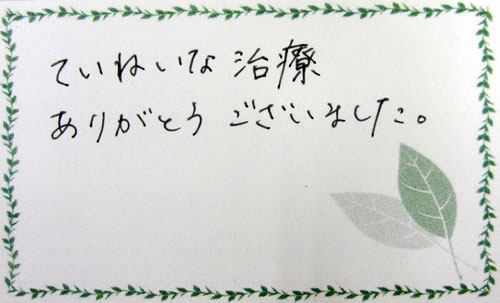 ていねいな 治療
ありがとう ございました。